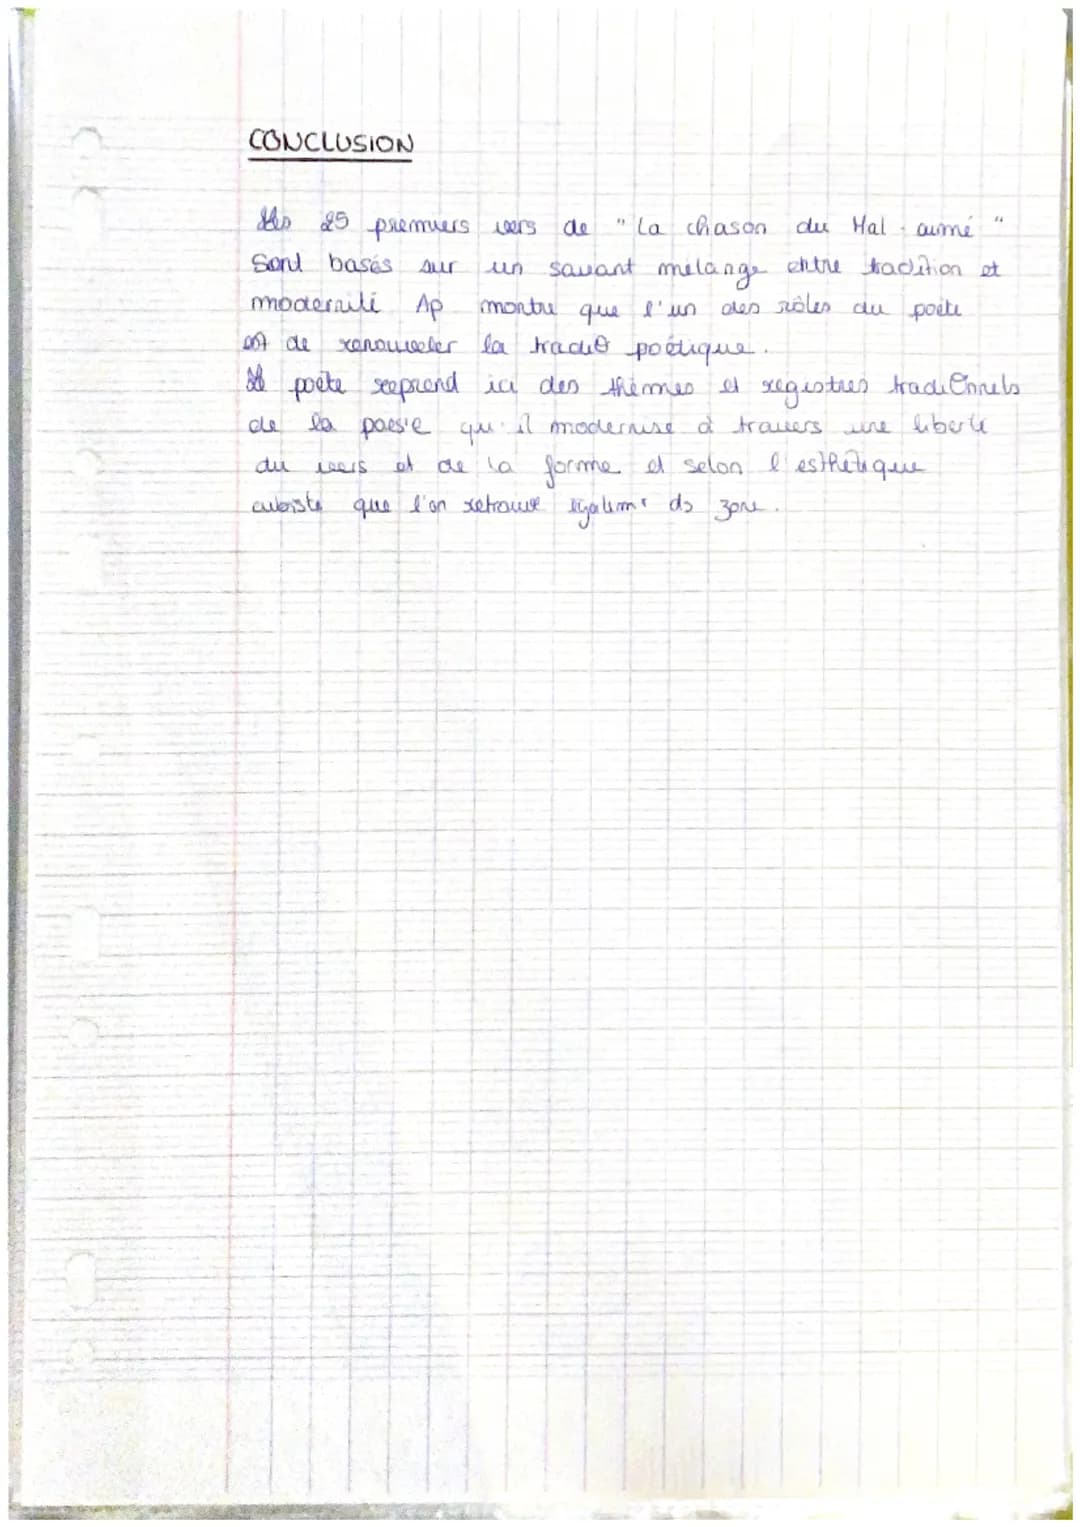 CONCLUSION
Les 25 premiers vers de "La chason du Mal-aimé"
Sont basés sur un savant mélange entre tradition et
modernité Ap montre que l'un des rôles du poète
est de renouveler la tradi° poétique.
Le poète reprend ici des thèmes et registres tradi0nnels
de la poesie qu'il modernise à travers une liberté
du vers et de la forme et selon l'esthétique
cubiste que l'on retrouve égalemt ds zone.